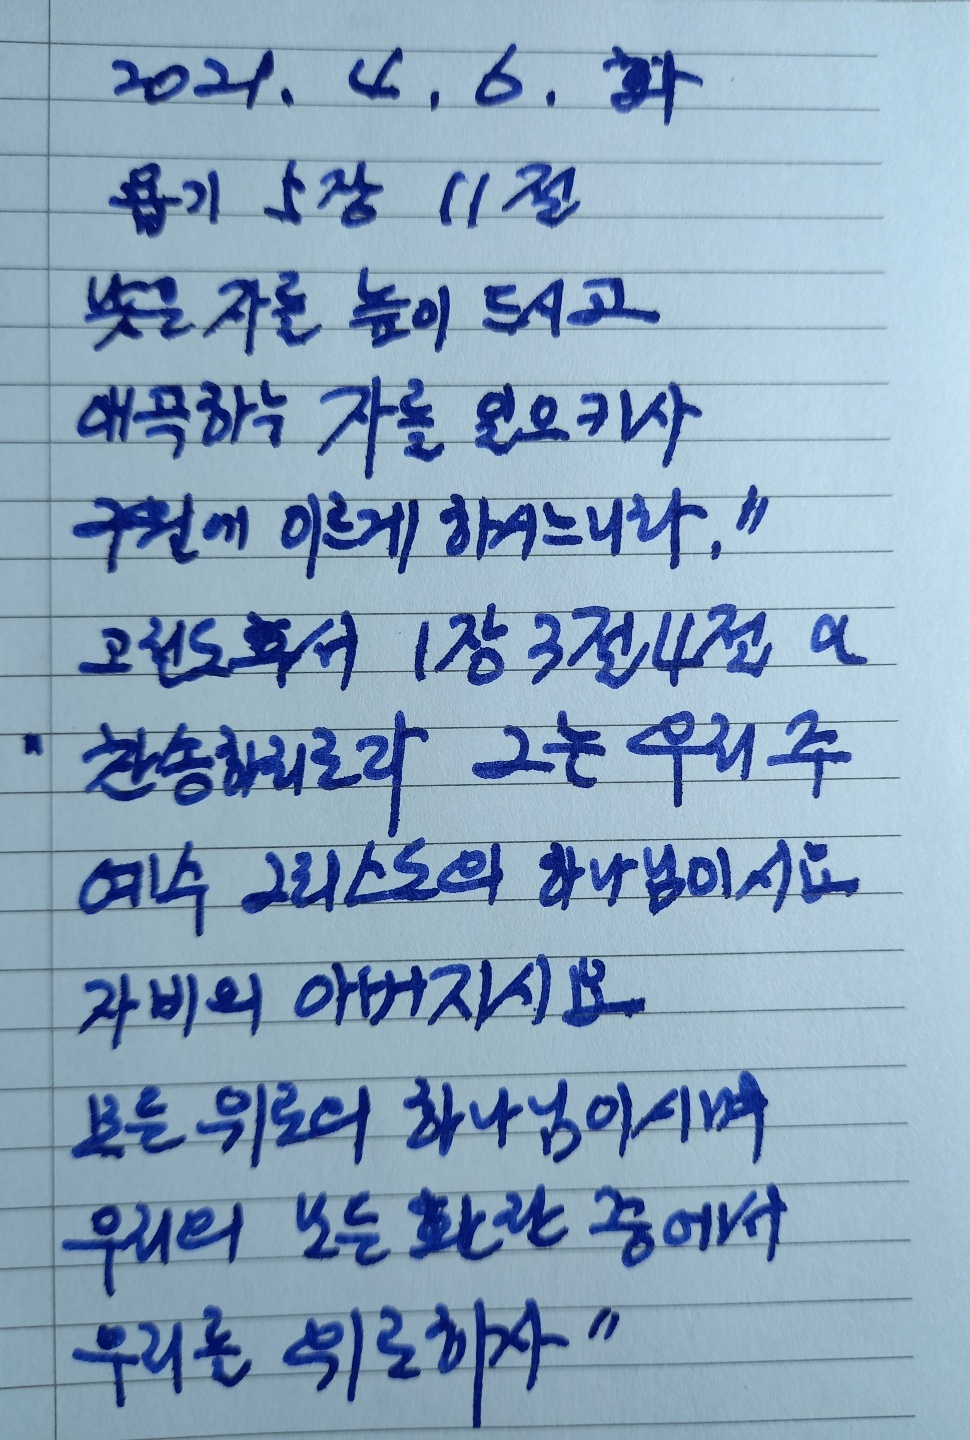 2021. 4. 6. 화
욥기 5장 11절
낮은 자를 높이 드시고
애곡하는 자를 일으키사
구원에 이르게 하시느니라."
고린도후서 1장3절4절 a
" 찬송하리로다 그는 우리 주
예수 그리스도의 하나님이시요
자비의 아버지시요
모든 위로의 하나님이시며
우리의 모든 환란 중에서
우리를 위로하사"